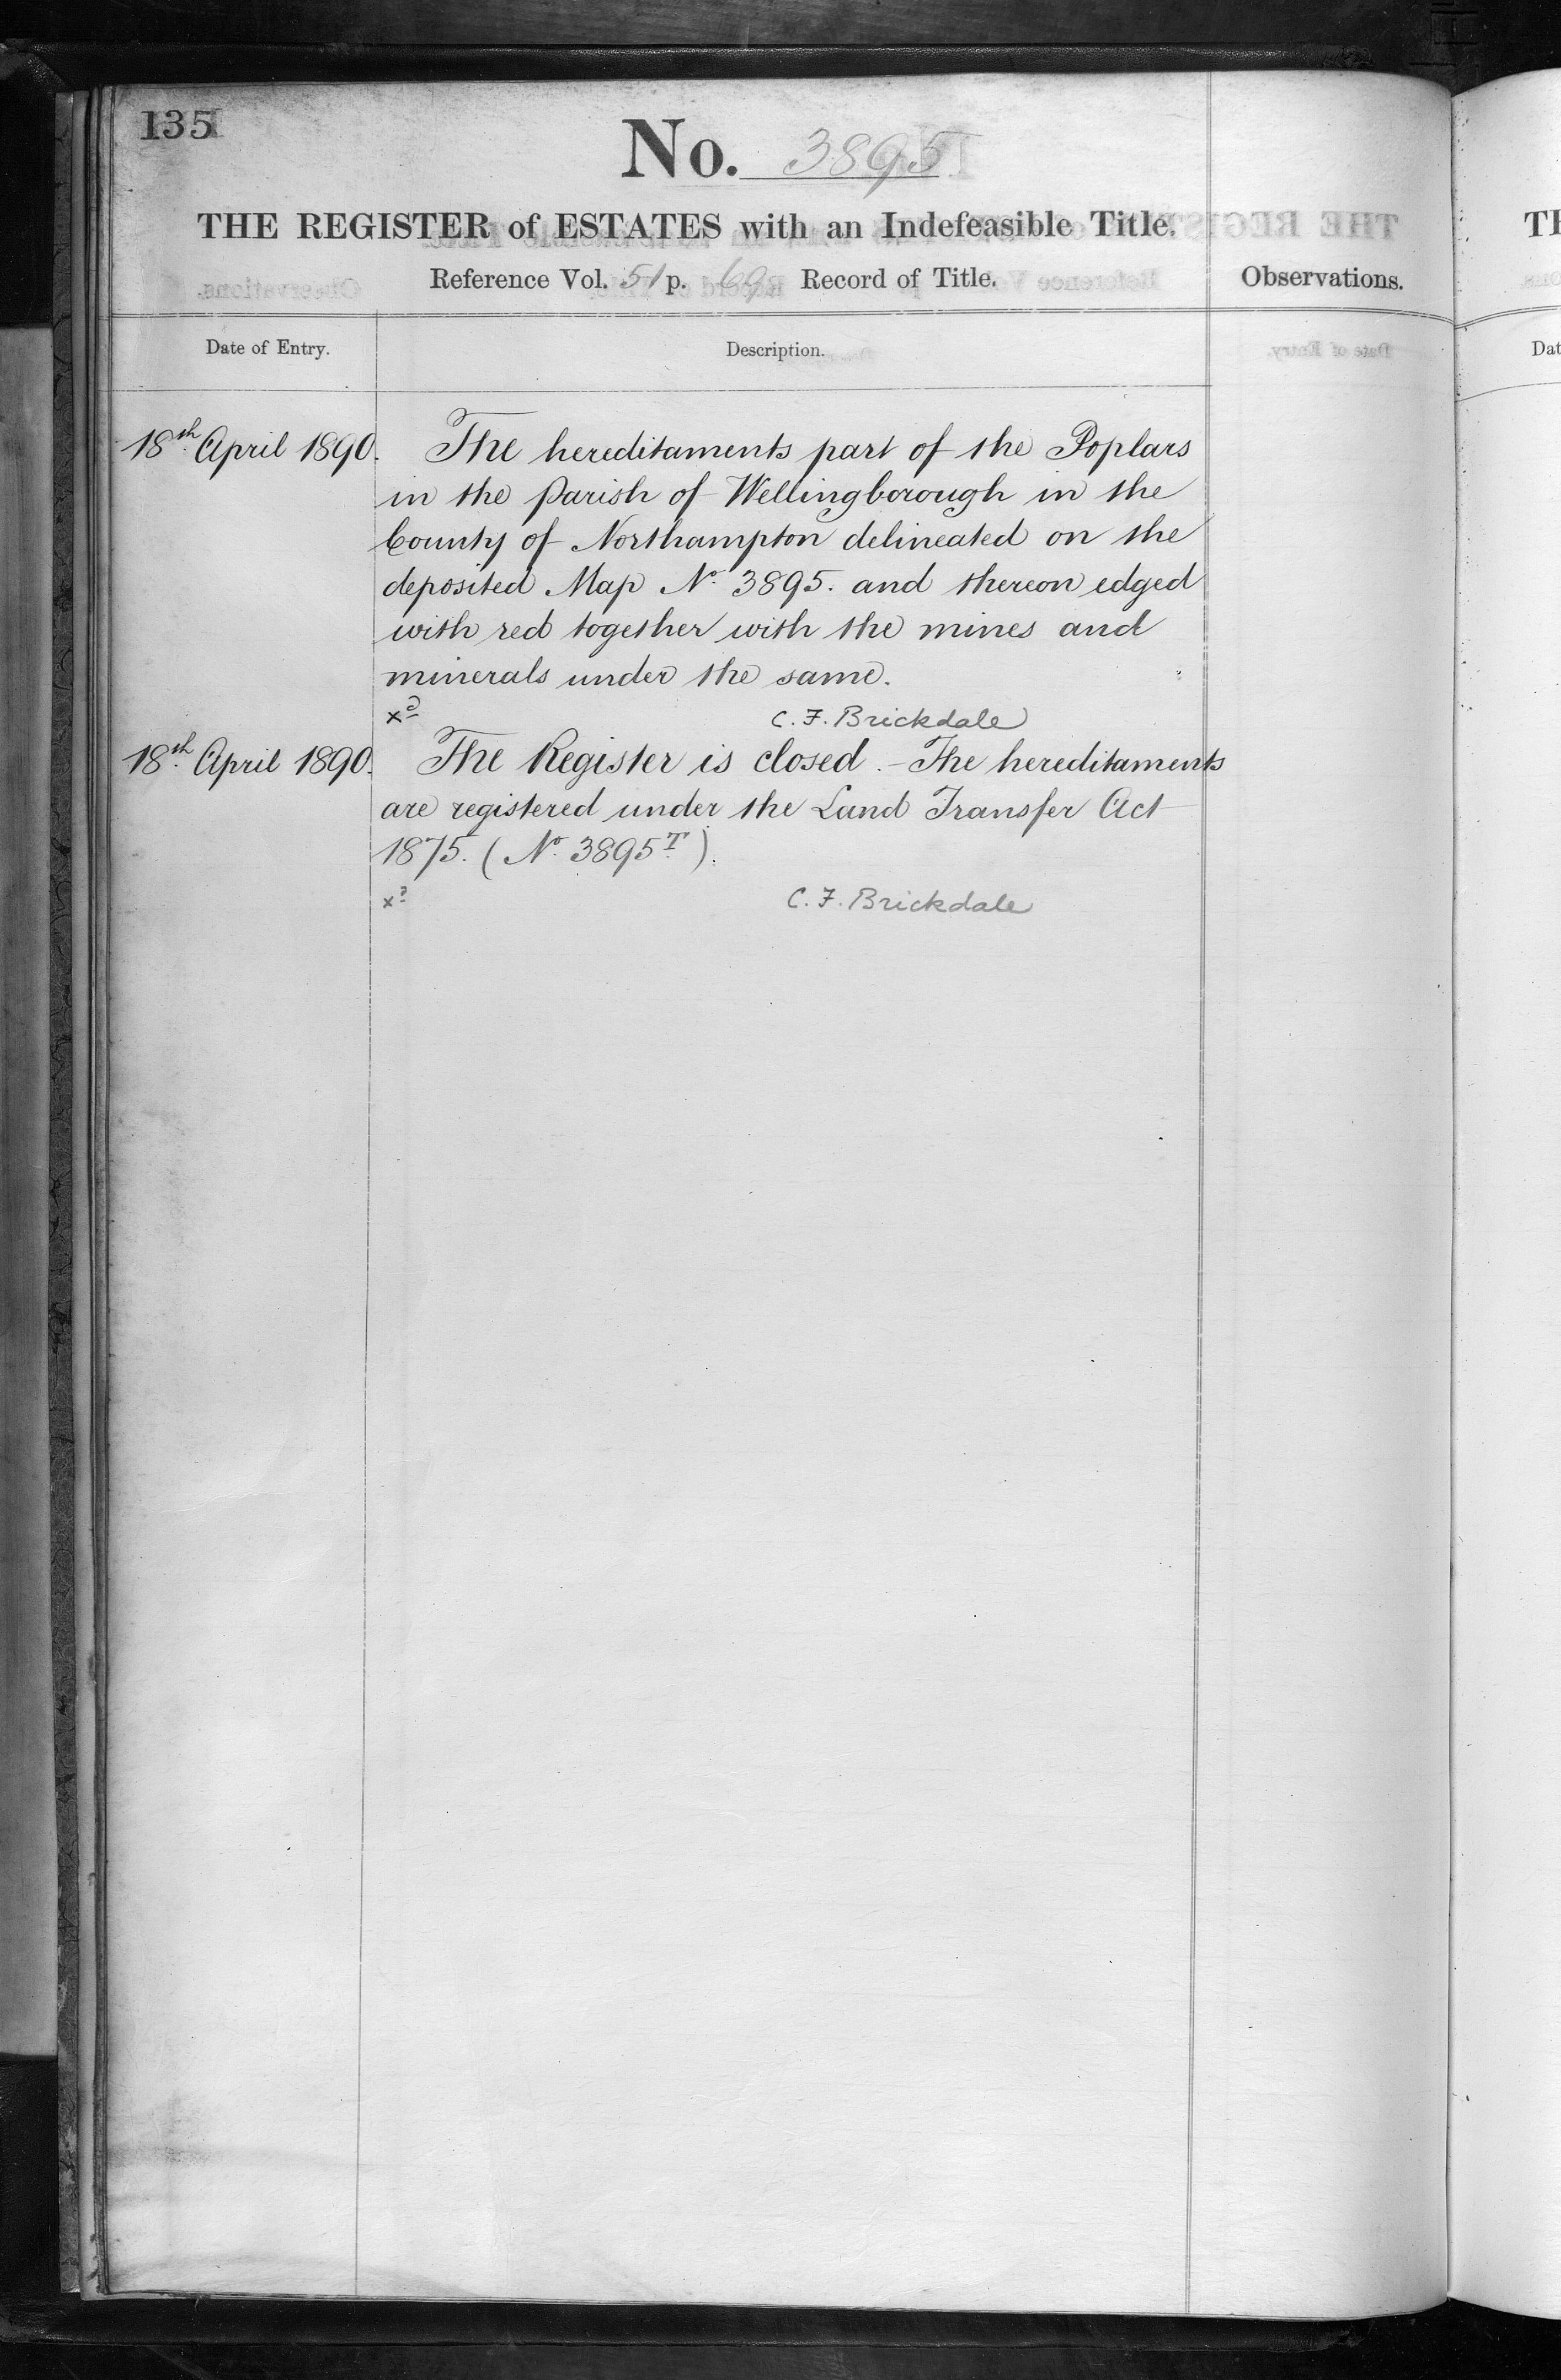 135
No. 3895
THE REGISTER of ESTATES with an Indefeasible Title.
Reference Vol. 51 p. 69 Record of Title.
Observations.
Date of Entry.
Description.
18th April 1890.
The hereditaments part of the Poplars
in the Parish of Wellingborough in the
County of Northampton delineated on the
deposited Map No. 3895. and thereon edged
with red together with the mines and
minerals under the same.
xd
C. F. Brickdale
18th April 1890.
The Register is closed. – The hereditaments
are registered under the Land Transfer Act
1875. (No. 3895T).
xd
C. F. Brickdale